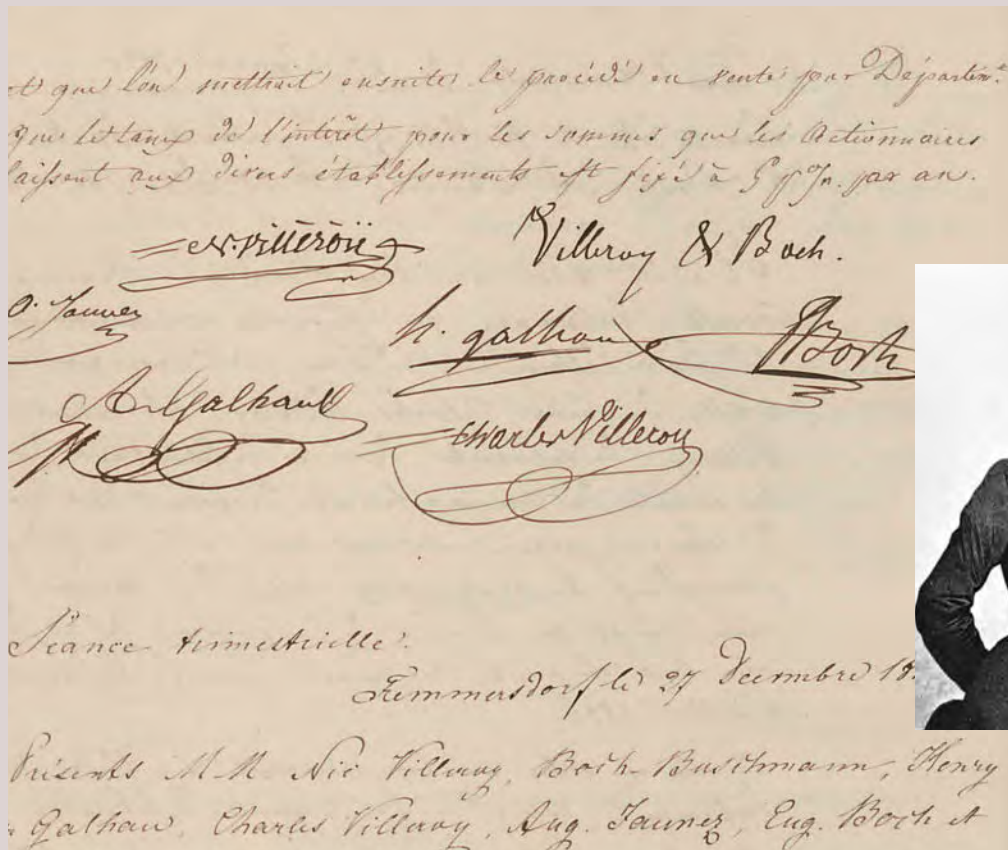 et que l'on mettrait ensuite le procédé en vente par Départemt
que le taux de l'intérêt pour les sommes que les Actionnaires
laissent aux divers établissements est fixé à 5 p% par an.
N. Villeroy
Villeroy & Boch.
A. Jaunez
h. galhau
Boch
A. Galhau
Charles Villeroy
Séance trimestrielle.
Fremmersdorf le 27 Decembre 18
Présents MM Nic Villeroy, Boch-Buschmann, Henry
Galhau, Charles Villeroy, Aug. Jaunez, Eug. Boch et